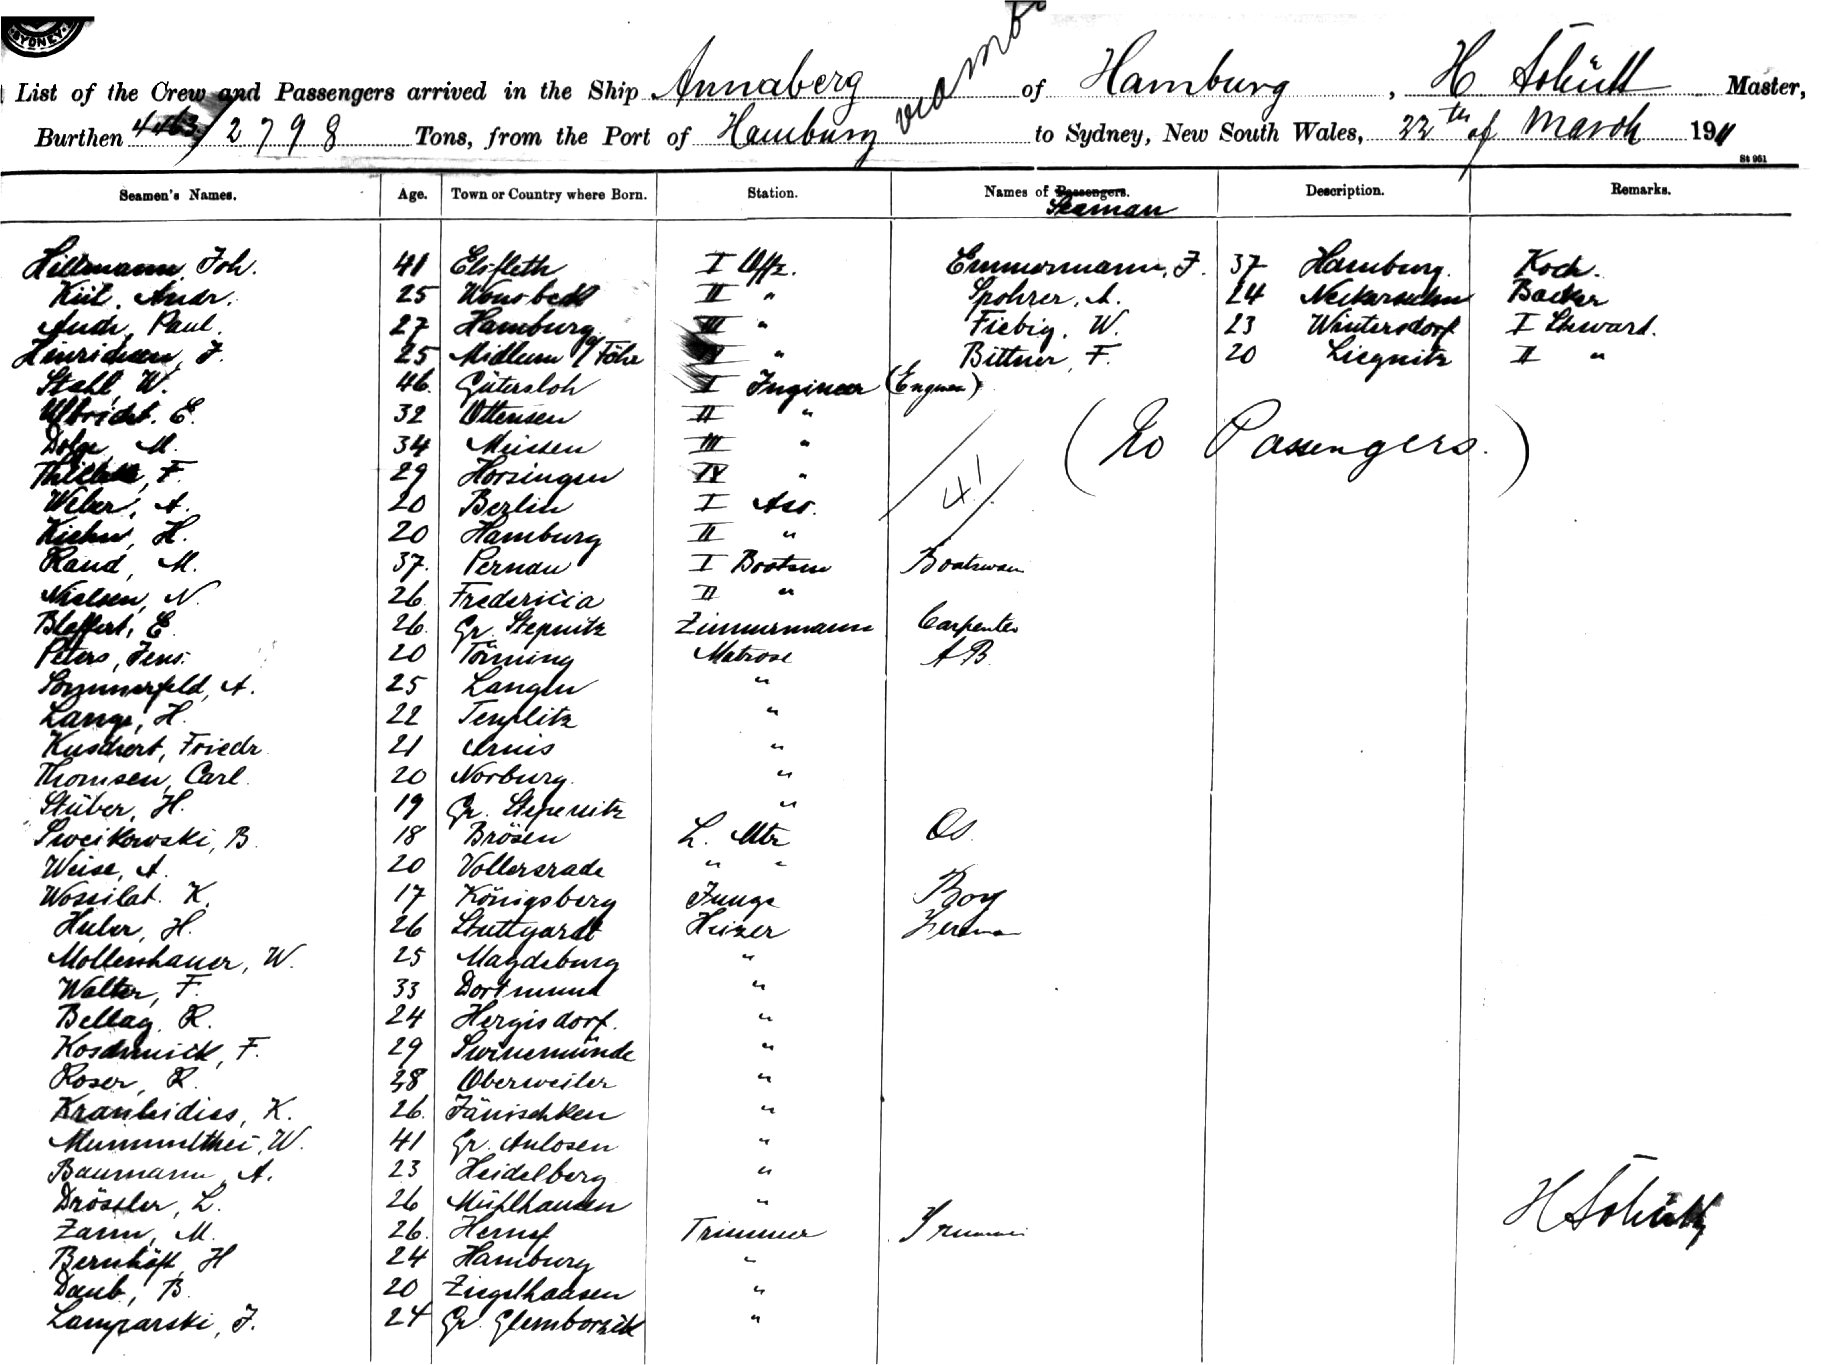 SYDNEY
List of the Crew and Passengers arrived in the Ship Annaberg of Hamburg, H Schütt Master,
Burthen 4463/2798 Tons, from the Port of Hamburg via to Sydney, New South Wales, 22th of March 1911
St 961
Seamen's Names. Age. Town or Country where Born. Station. Names of Passengers. Description. Remarks.
Seaman
Hillmann, Joh. 41 Elsfleth I Offz. Emmermann, F. 37 Hamburg. Koch.
Andr. 25 II " Spohrer, A. 24 Backer
Paul. 27 Hamburg III " Fiebig, W. 23 Wintersdorf I Steward.
Hinrichsen, J. 25 Midlum a/Föhr " Bittner, F. 20 Liegnitz II "
Stahl, W. 46 Gütersloh I Ingineer (Engineer)
Ulbricht. E. 32 Ottensen II "
Dolge, M. 34 Meissen III "
F. 29 Horsingen IV "
(No Passengers.)
Weber, A. 20 Berlin I Ass.
41
Kiehn, H. 20 Hamburg II "
Raud, M. 37. Pernau I Bootsm Boatswain
Nielsen, N. 26. Fredericia II "
Blaffert, E. 26. Gr. Stepnitz Zimmermann Carpenter
Peters, Jens. 20 Törning Matrose AB
Sommerfeld, A. 25 Langen "
Lange, H. 22 Templitz "
Kuschert, Friedr. 21 Arnis "
Thomsen, Carl. 20 Norburg. "
Stüber, H. 19 Gr. Stepenitz "
Sweikowski, B. 18 Brösen L. Mtr OS.
Weise, A. 20 Vollersrade " "
Wossilat. K. 17 Königsberg Junge Boy
Huber, H. 26 Stuttgardt Heizer Fireman
Mollenhauer, W. 25 Magdeburg "
Walter, F. 33 Dortmund "
Bellag, R. 24 Hergisdorf. "
Koschmick, F. 29 Swinemünde "
Roser, R. 28 Oberweiler "
Krauleidies, K. 26. Jänischken "
W. 41 Gr. Aulosen "
Baumann, A. 23 Heidelberg "
Drössler, L. 26 Mühlhausen "
H Schütt
Zann, M. 26. Trimmer Trimmer
Bernhöft, H 24 Hamburg "
Daub, B. 20 Ziegelhausen "
Lamparski, J. 24 Gr. "